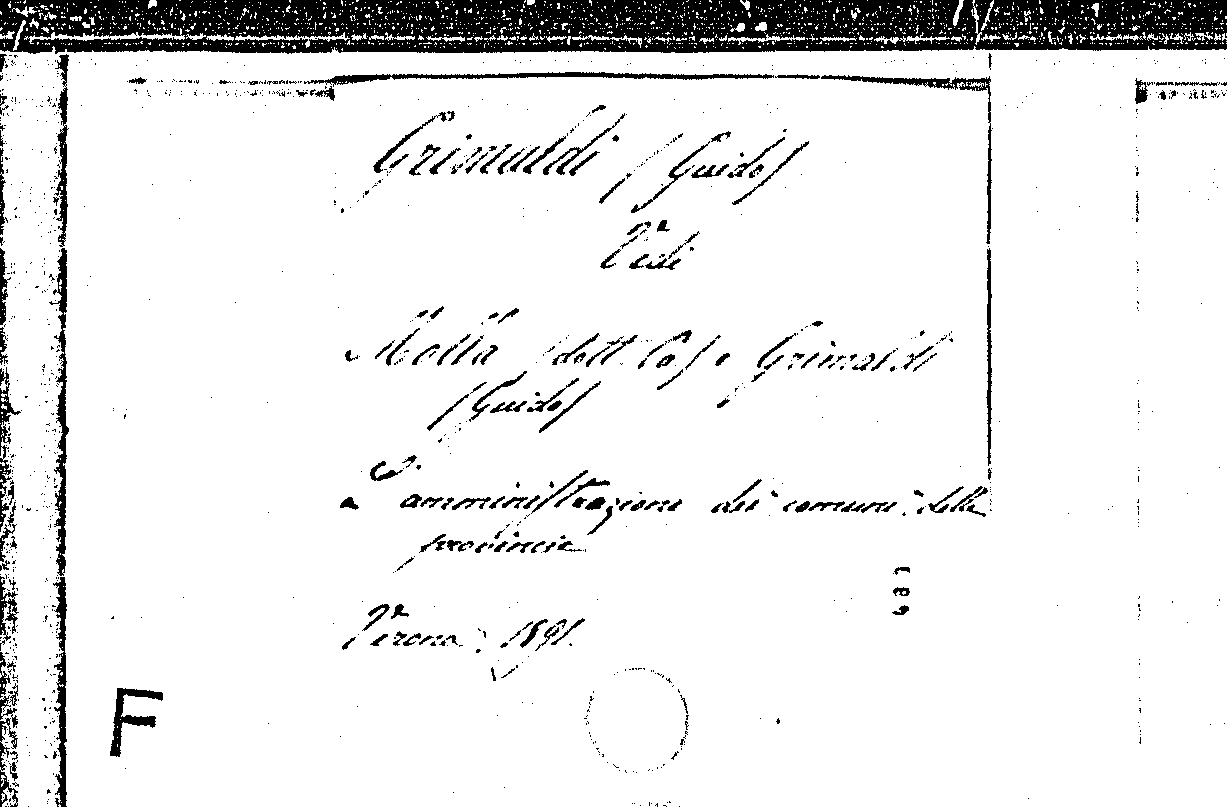 Grimaldi (Guido)
Vedi
Motta (dott. Co) e Grimaldi
(Guido)
L'amministrazione dei comuni e delle
provincie
Verona, 1891.
F